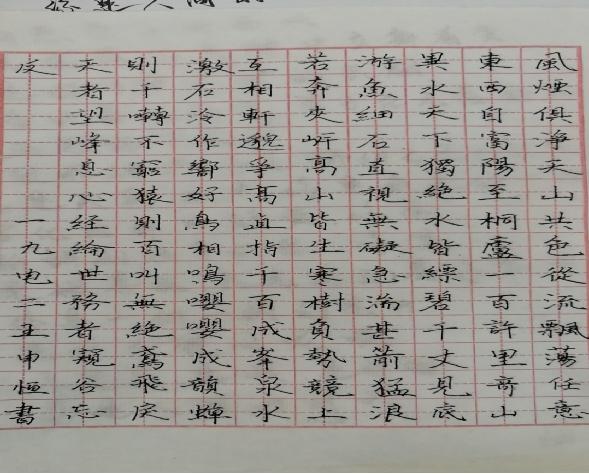 風煙俱淨天山共色從流飄蕩任意
東西自富陽至桐廬一百許里奇山
異水天下獨絕水皆縹碧千丈見底
游魚細石直視無礙急湍甚箭猛浪
若奔夾岸高山皆生寒樹負勢競上
互相軒邈爭高直指千百成峯泉水
激石泠作響好鳥相鳴嚶嚶成韻蟬
則千囀不窮猿則百叫無絕鳶飛戾
天者望峰息心經綸世務者窺谷忘
反 一九 二王申恒書